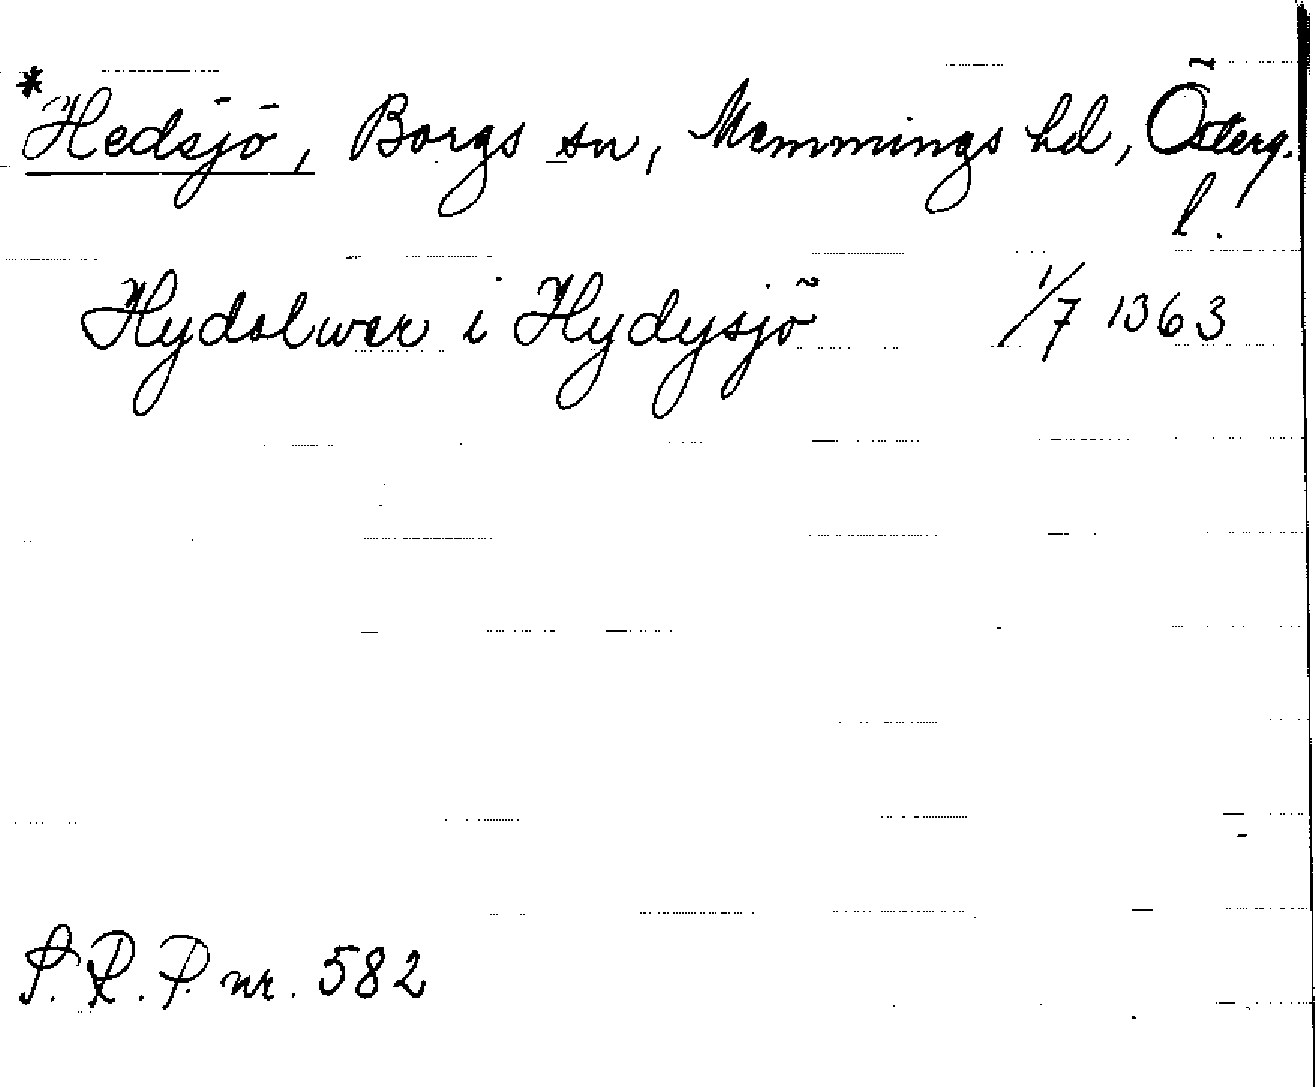 *Hedsjö, Borgs sn, Memmings hd, Österg.
l.
Hydolwer i Hydysjö 1/7 1363
S.R.P. nr. 582